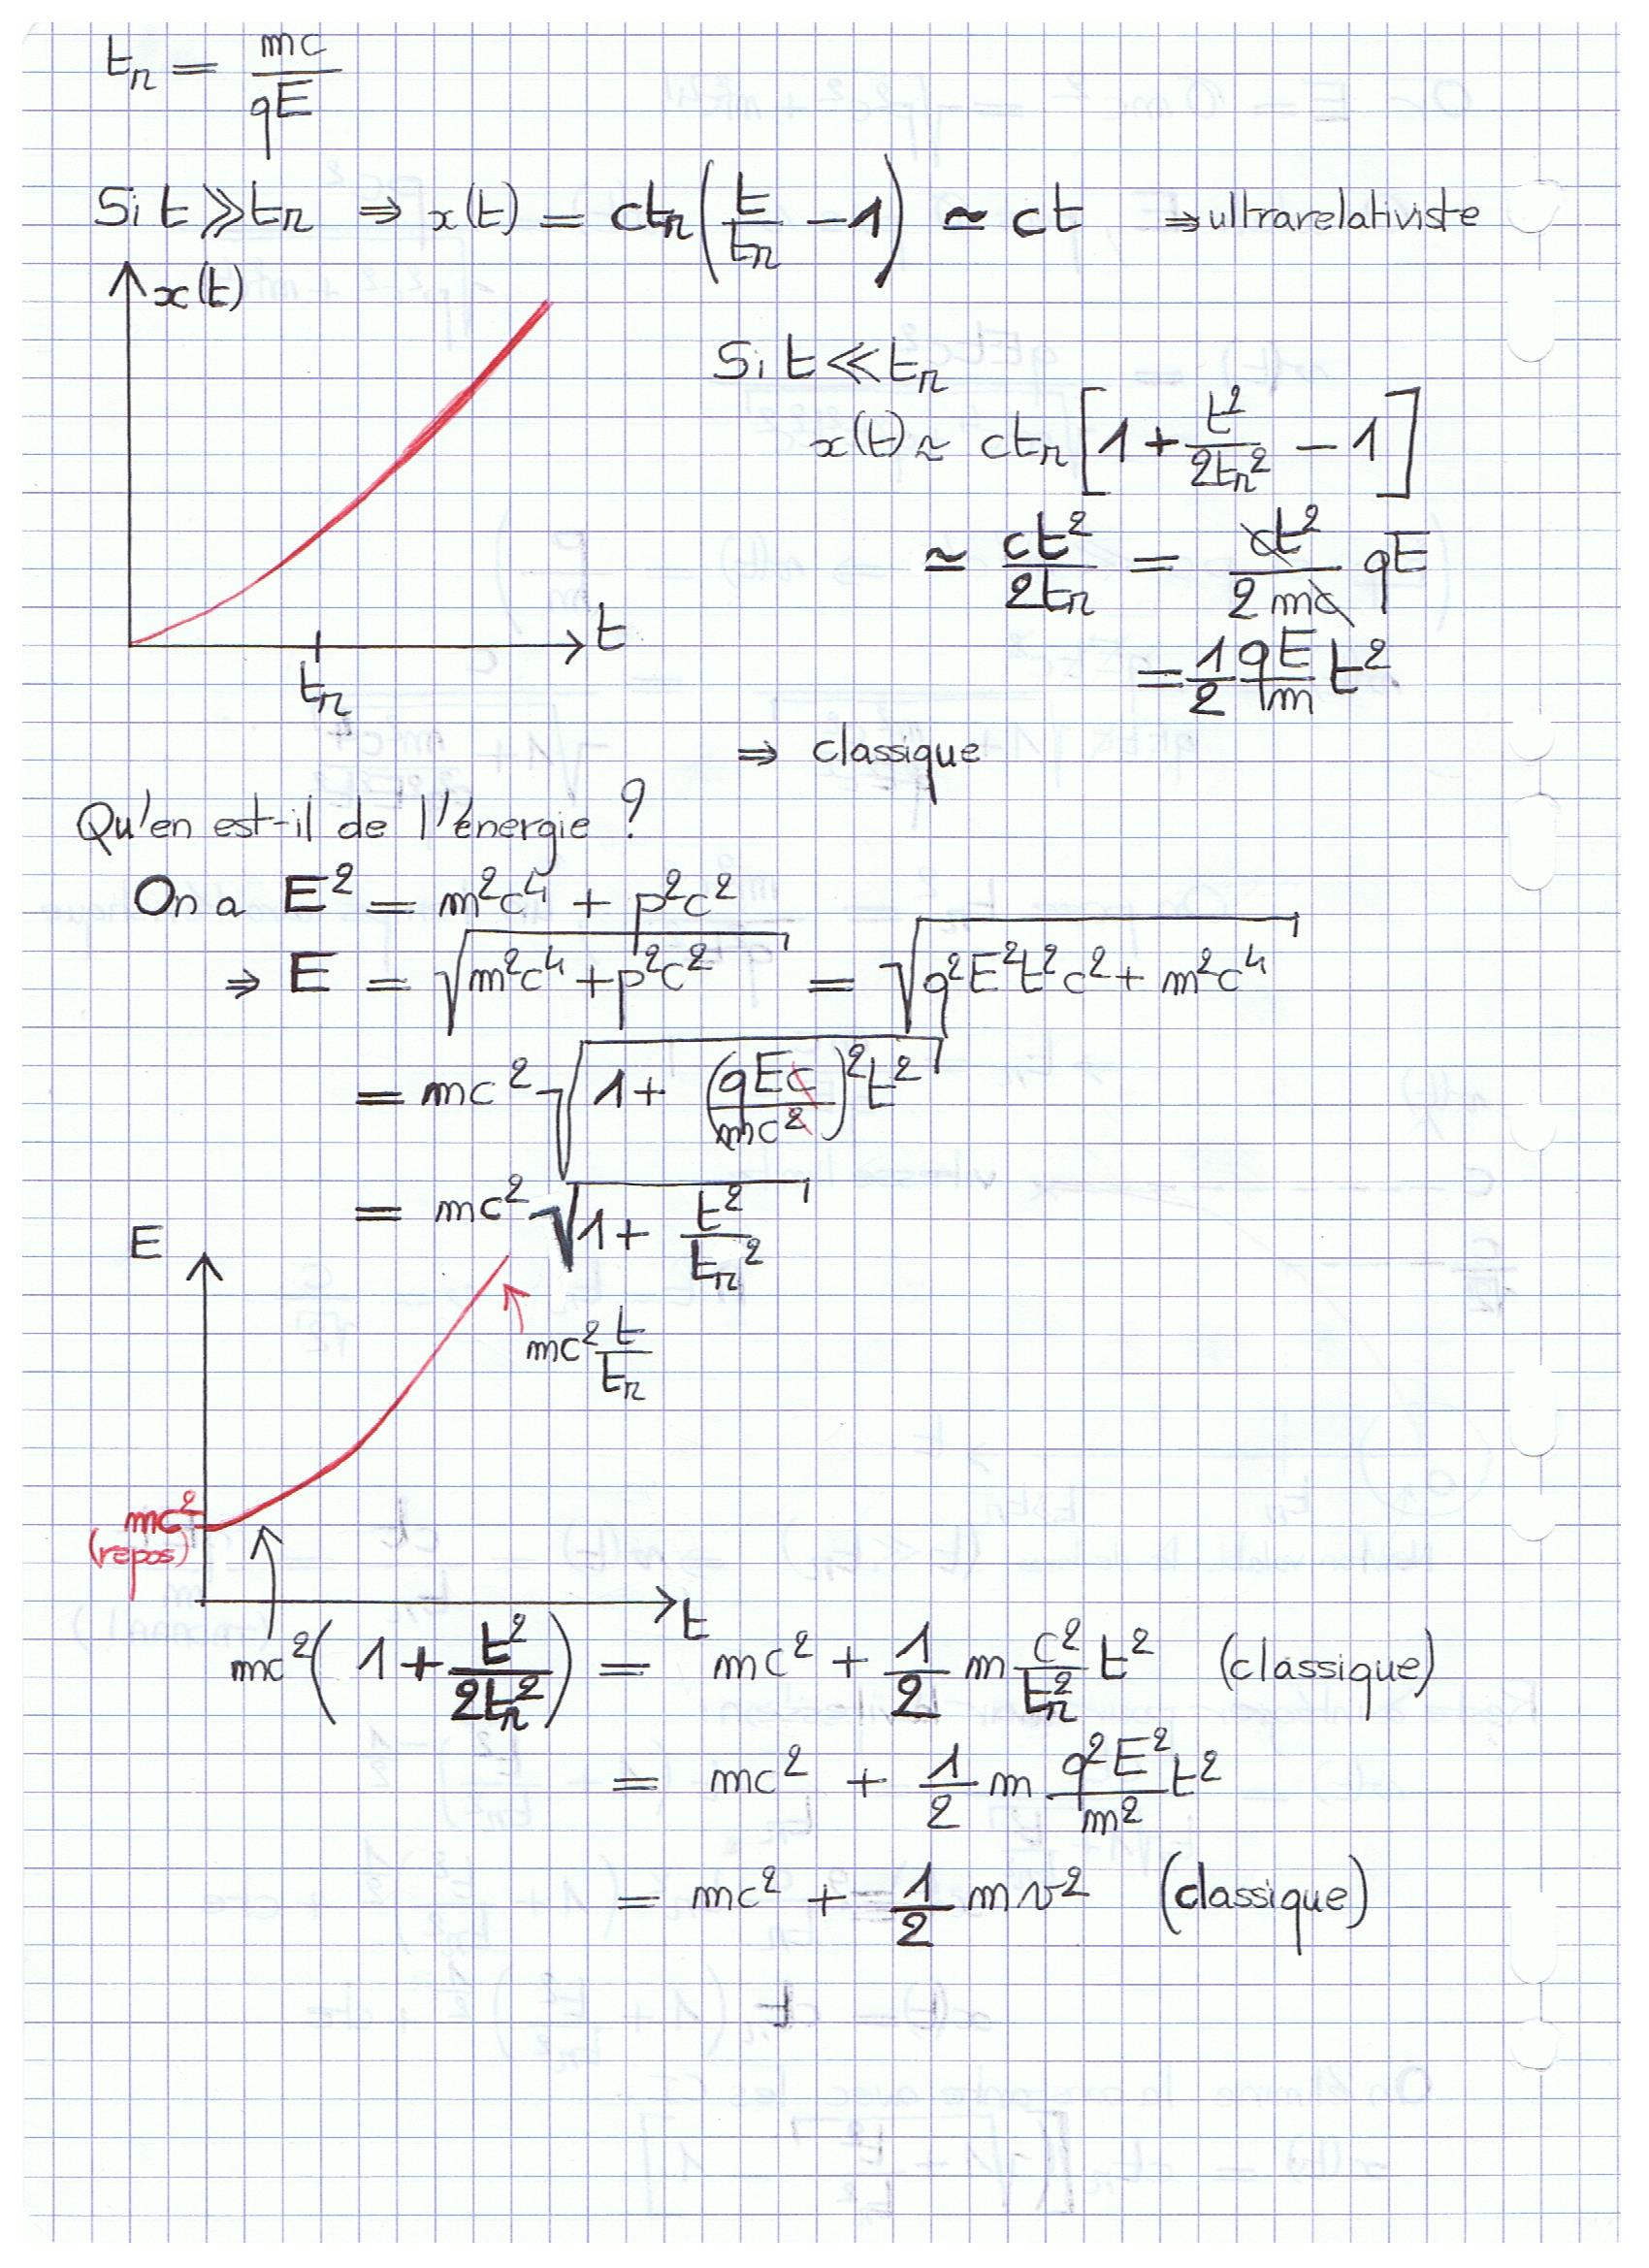 t_r = mc / qE
Si t ≫ t_r ⇒ x(t) = ct_r (t/t_r − 1) ≃ ct ⇒ ultrarelativiste
x(t)
t
t_r
Si t ≪ t_r
x(t) ≃ ct_r [1 + t²/2t_r² − 1]
≃ ct²/2t_r = ct²/2mc qE
= 1/2 qE/m t²
⇒ classique
Qu'en est-il de l'énergie ?
On a E² = m²c⁴ + p²c²
⇒ E = √(m²c⁴ + p²c²) = √(q²E²t²c² + m²c⁴)
= mc² √(1 + (qEc/mc²)² t²)
= mc² √(1 + t²/t_r²)
E
mc² t/t_r
mc²
(repos)
t
mc² (1 + t²/2t_r²) = mc² + 1/2 m c²/t_r² t² (classique)
= mc² + 1/2 m q²E²/m² t²
= mc² + 1/2 mv² (classique)